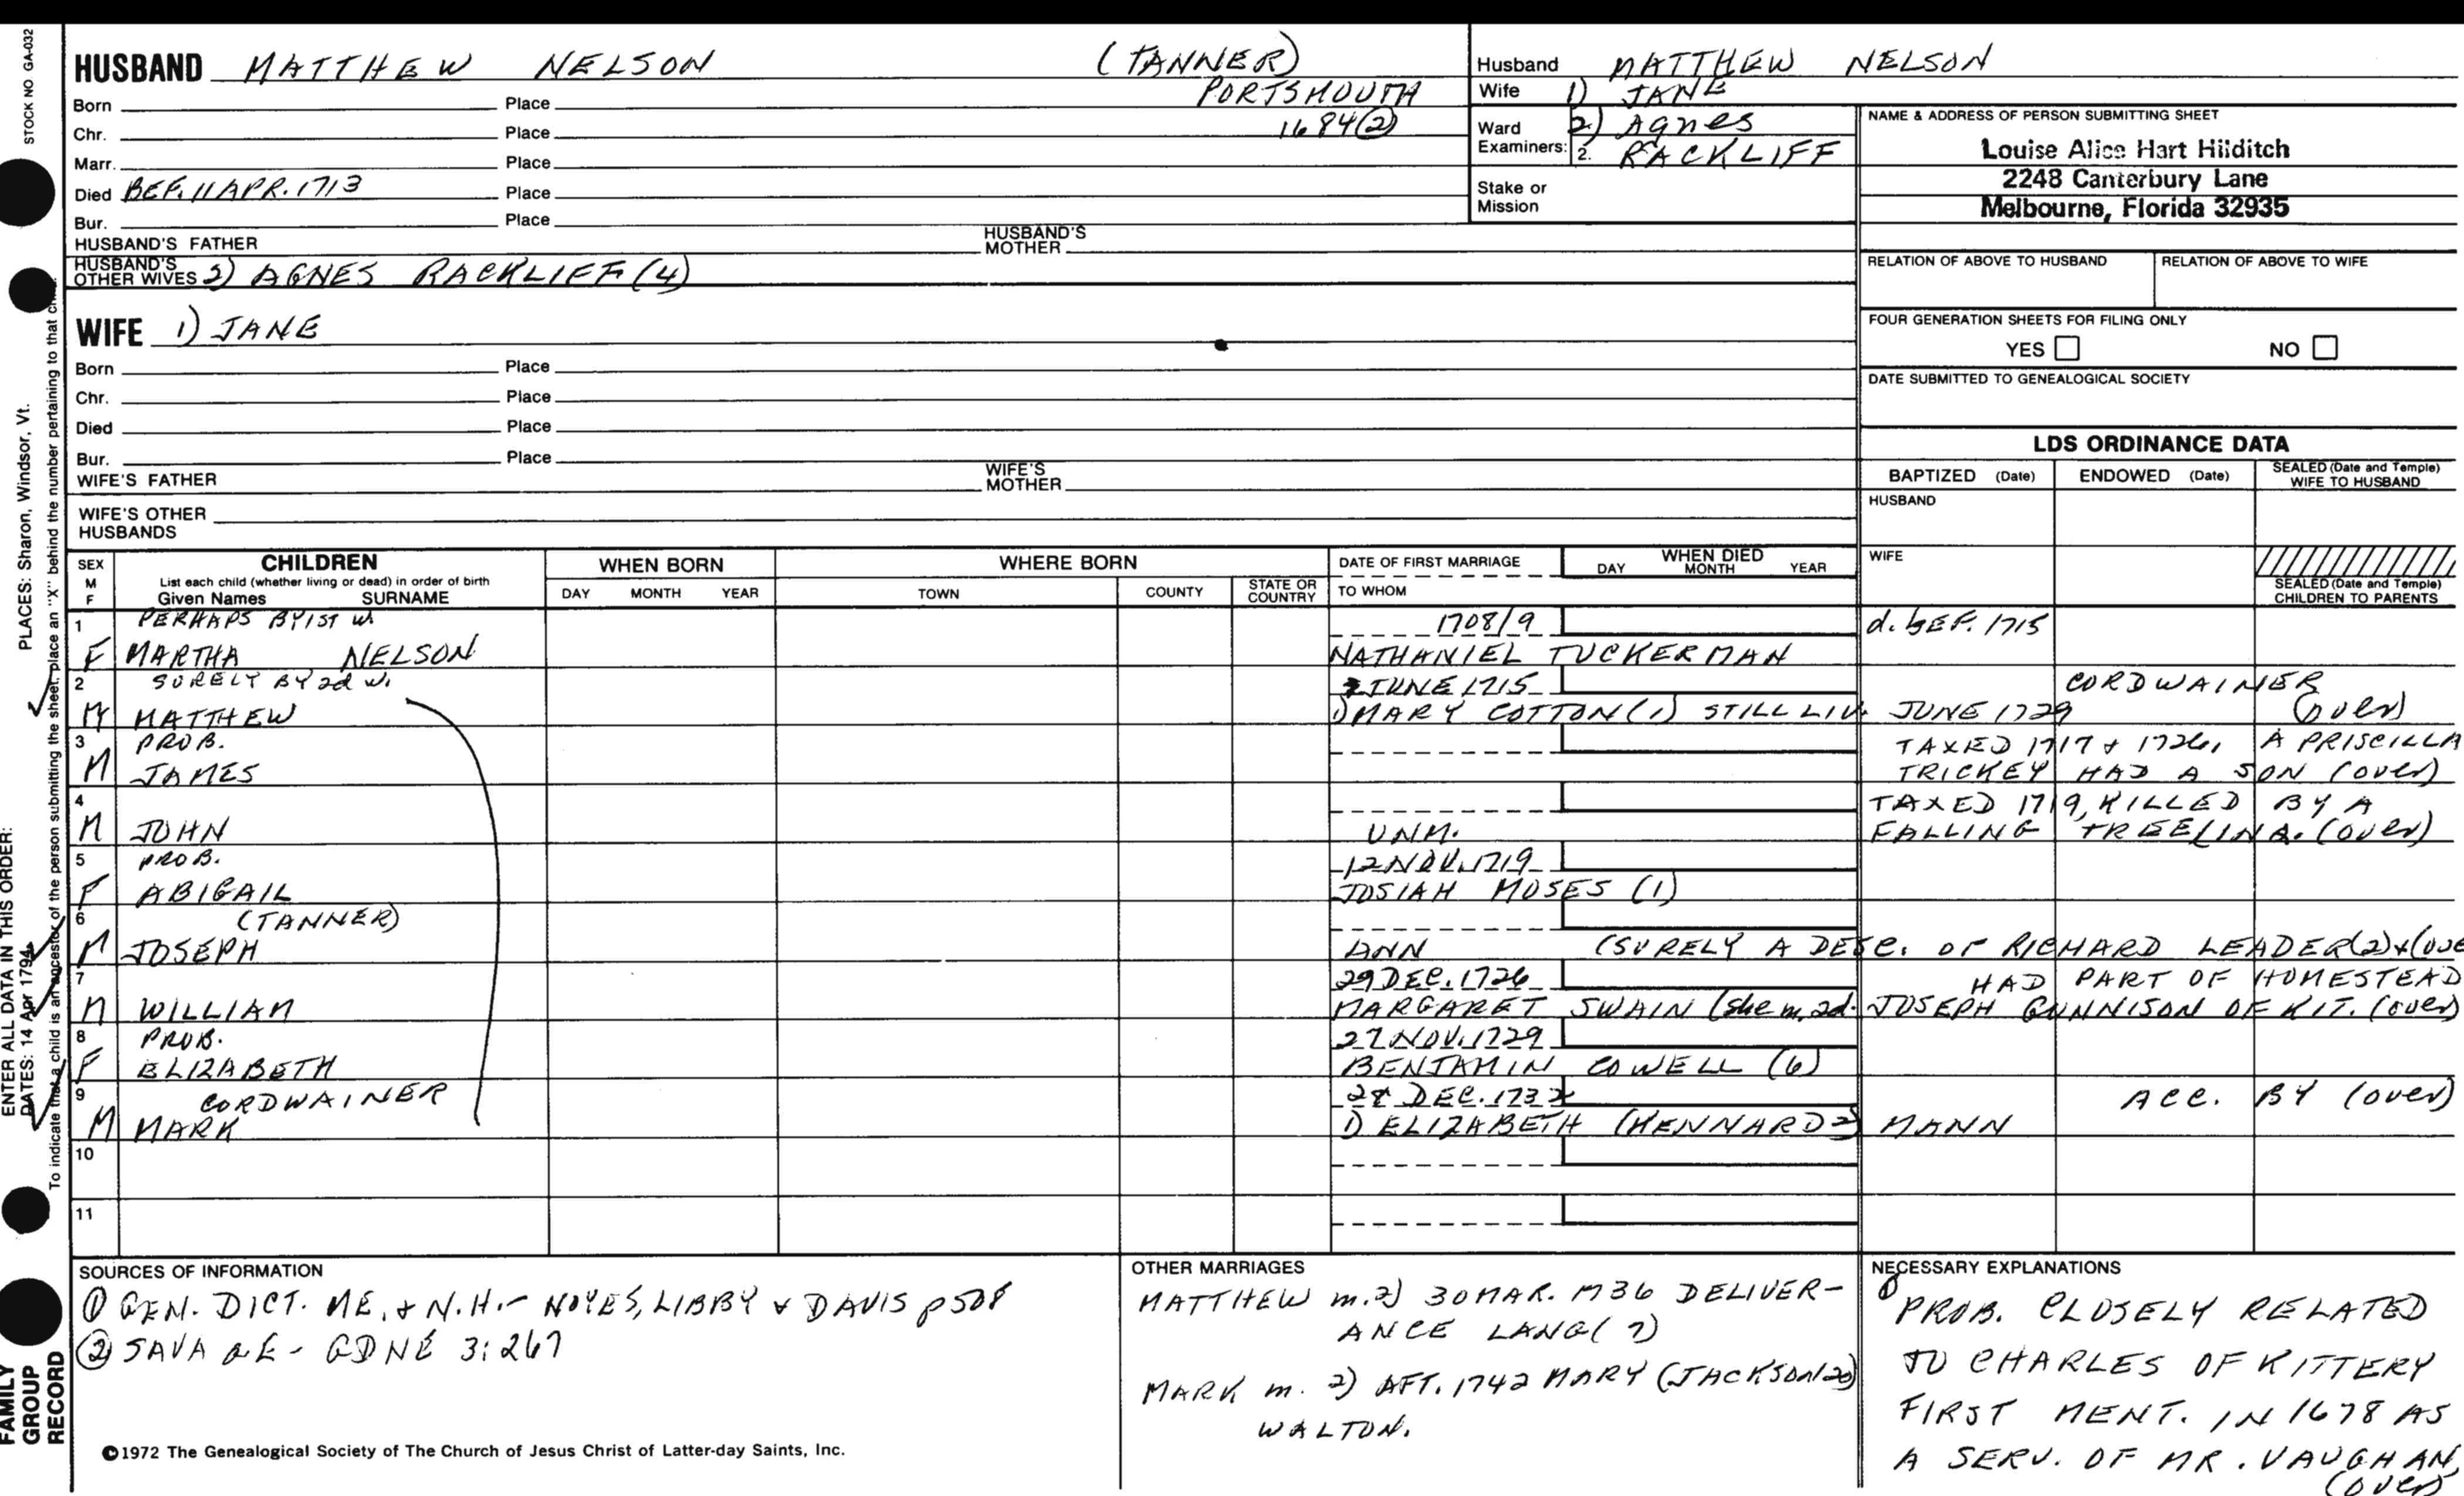 STOCK NO GA-032
PLACES: Sharon, Windsor, Vt.
ENTER ALL DATA IN THIS ORDER:
DATES: 14 Apr 1794
To indicate that a child is an ancestor of the person submitting the sheet, place an "X" behind the number pertaining to that
FAMILY
GROUP
RECORD
HUSBAND MATTHEW NELSON (TANNER)
Born Place PORTSMOUTH
Chr. Place 1684(2)
Marr. Place
Died BEF. 11 APR. 1713 Place
Bur. Place
HUSBAND'S FATHER HUSBAND'S MOTHER
HUSBAND'S OTHER WIVES 2) AGNES RACKLIFF (4)
WIFE 1) JANE
Born Place
Chr. Place
Died Place
Bur. Place
WIFE'S FATHER WIFE'S MOTHER
WIFE'S OTHER HUSBANDS
Husband MATTHEW NELSON
Wife 1) JANE
Ward 2) Agnes
Examiners: 2. RACKLIFF
Stake or
Mission
NAME & ADDRESS OF PERSON SUBMITTING SHEET
Louise Alice Hart Hilditch
2248 Canterbury Lane
Melbourne, Florida 32935
RELATION OF ABOVE TO HUSBAND RELATION OF ABOVE TO WIFE
FOUR GENERATION SHEETS FOR FILING ONLY
YES NO
DATE SUBMITTED TO GENEALOGICAL SOCIETY
LDS ORDINANCE DATA
BAPTIZED (Date) ENDOWED (Date) SEALED (Date and Temple) WIFE TO HUSBAND
HUSBAND
WIFE
SEALED (Date and Temple) CHILDREN TO PARENTS
SEX M F
CHILDREN
List each child (whether living or dead) in order of birth
Given Names SURNAME
WHEN BORN
DAY MONTH YEAR
WHERE BORN
TOWN COUNTY STATE OR COUNTRY
DATE OF FIRST MARRIAGE
TO WHOM
WHEN DIED
DAY MONTH YEAR
1 PERHAPS BY 1ST W. 1708/9 d. bef. 1715
F MARTHA NELSON NATHANIEL TUCKERMAN
2 SURELY BY 2d W. JUNE 1715 CORDWAINER
M MATTHEW 1) MARY COTTON (1) STILL LIV. JUNE 1729 (over)
3 PROB. TAXED 1717 & 1726, A PRISCILLA
M JAMES TRICKEY HAD A SON (over)
4 TAXED 1719, KILLED BY A
M JOHN UNM. FALLING TREE (over)
5 PROB. 12 NOV. 1719
F ABIGAIL JOSIAH MOSES (1)
6 (TANNER)
M JOSEPH ANN (SURELY A DESC. OF RICHARD LEADER (2) &
7 29 DEC. 1726 HAD PART OF HOMESTEAD
M WILLIAM MARGARET SWAIN (she m. 2d. JOSEPH GUNNISON OF KIT. (over)
8 PROB. 27 NOV. 1729
F ELIZABETH BENJAMIN COWELL (6)
9 CORDWAINER 28 DEC. 1732 ACC. BY (over)
M MARK 1) ELIZABETH (KENNARD 2) MANN
10
11
SOURCES OF INFORMATION
① GEN. DICT. ME. & N.H. - NOYES, LIBBY & DAVIS p 508
② SAVAGE - GDNE 3:267
©1972 The Genealogical Society of The Church of Jesus Christ of Latter-day Saints, Inc.
OTHER MARRIAGES
MATTHEW m. 2) 30 MAR. 1736 DELIVER-
ANCE LANG (7)
MARK m. 2) AFT. 1742 MARY (JACKSON
WALTON.
NECESSARY EXPLANATIONS
① PROB. CLOSELY RELATED
TO CHARLES OF KITTERY
FIRST MENT. IN 1678 AS
A SERV. OF MR. VAUGHAN,
(over)